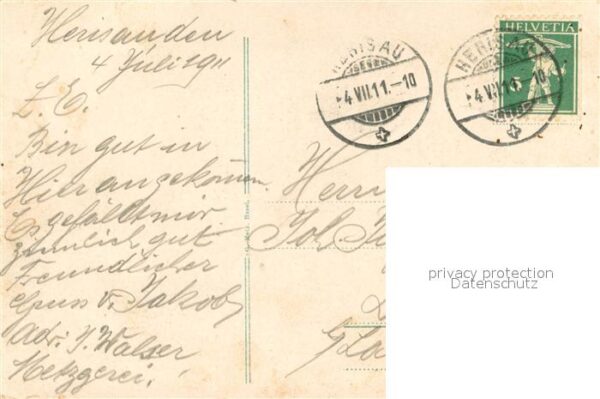 Herisau den
4 Juli 1911
L. E.
Bin gut in
Hier angekommen.
Es gefällt mir
ziemlich gut
Freundlicher
Gruss v. Jakob
Adr. J. Walser
Metzgerei.
HERISAU
4.VII.11.-10
HERISAU
4.VII.11.-10
HELVETIA
Herrn
Joh
privacy protection
Datenschutz